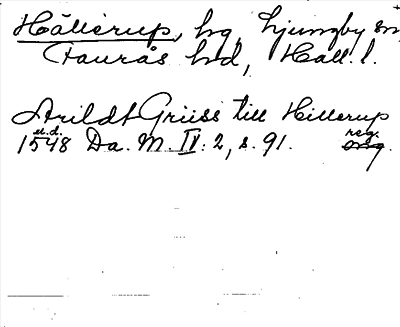 Hällerup, hg, Ljungby sn
Faurås hd, Hall. l.
Arildt Grüss till Hillerup
u.d. reg.
1548 Da. M. IV: 2, s. 91. orig